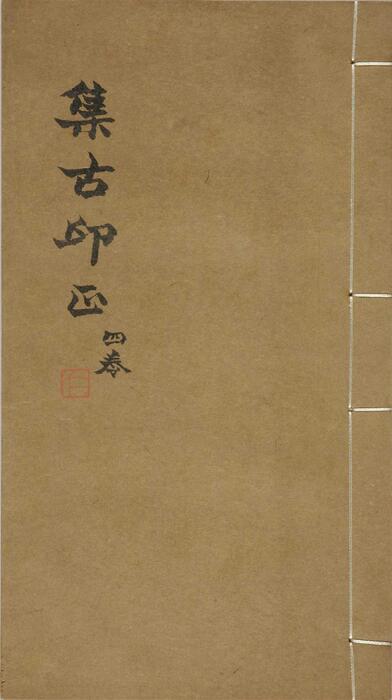 集古印正
四卷